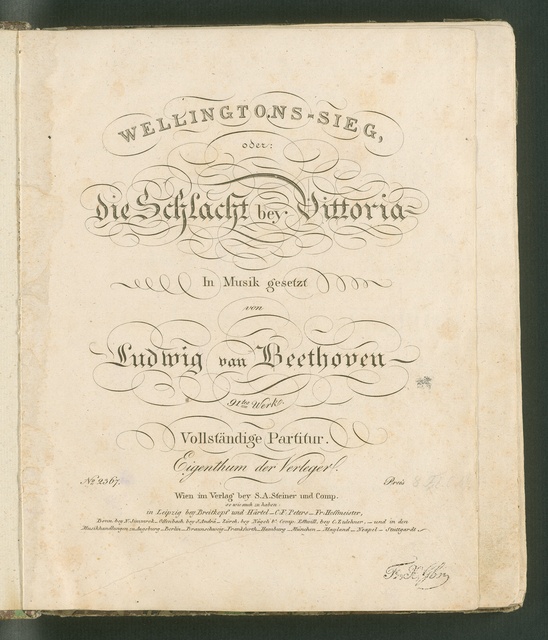 WELLINGTONS-SIEG,
oder:
die Schlacht bey Vittoria
In Musik gesetzt
von
Ludwig van Beethoven
91tes Werk.
Vollständige Partitur.
Eigenthum der Verleger.
No. 2367. Preis
Wien im Verlag bey S. A. Steiner und Comp.
so wie auch zu haben
in Leipzig bey Breitkopf und Härtel - C. F. Peters - Fr. Hoffmeister,
Bonn, bey N. Simrock - Offenbach, bey J. André - Zürch, bey Nägeli u. Comp. bey C. Zulehner, - und in den
Musikhandlungen in Augsburg - Berlin - Braunschweig - Frankfurth - Hamburg - München - Mayland - Neapel - Stuttgardt